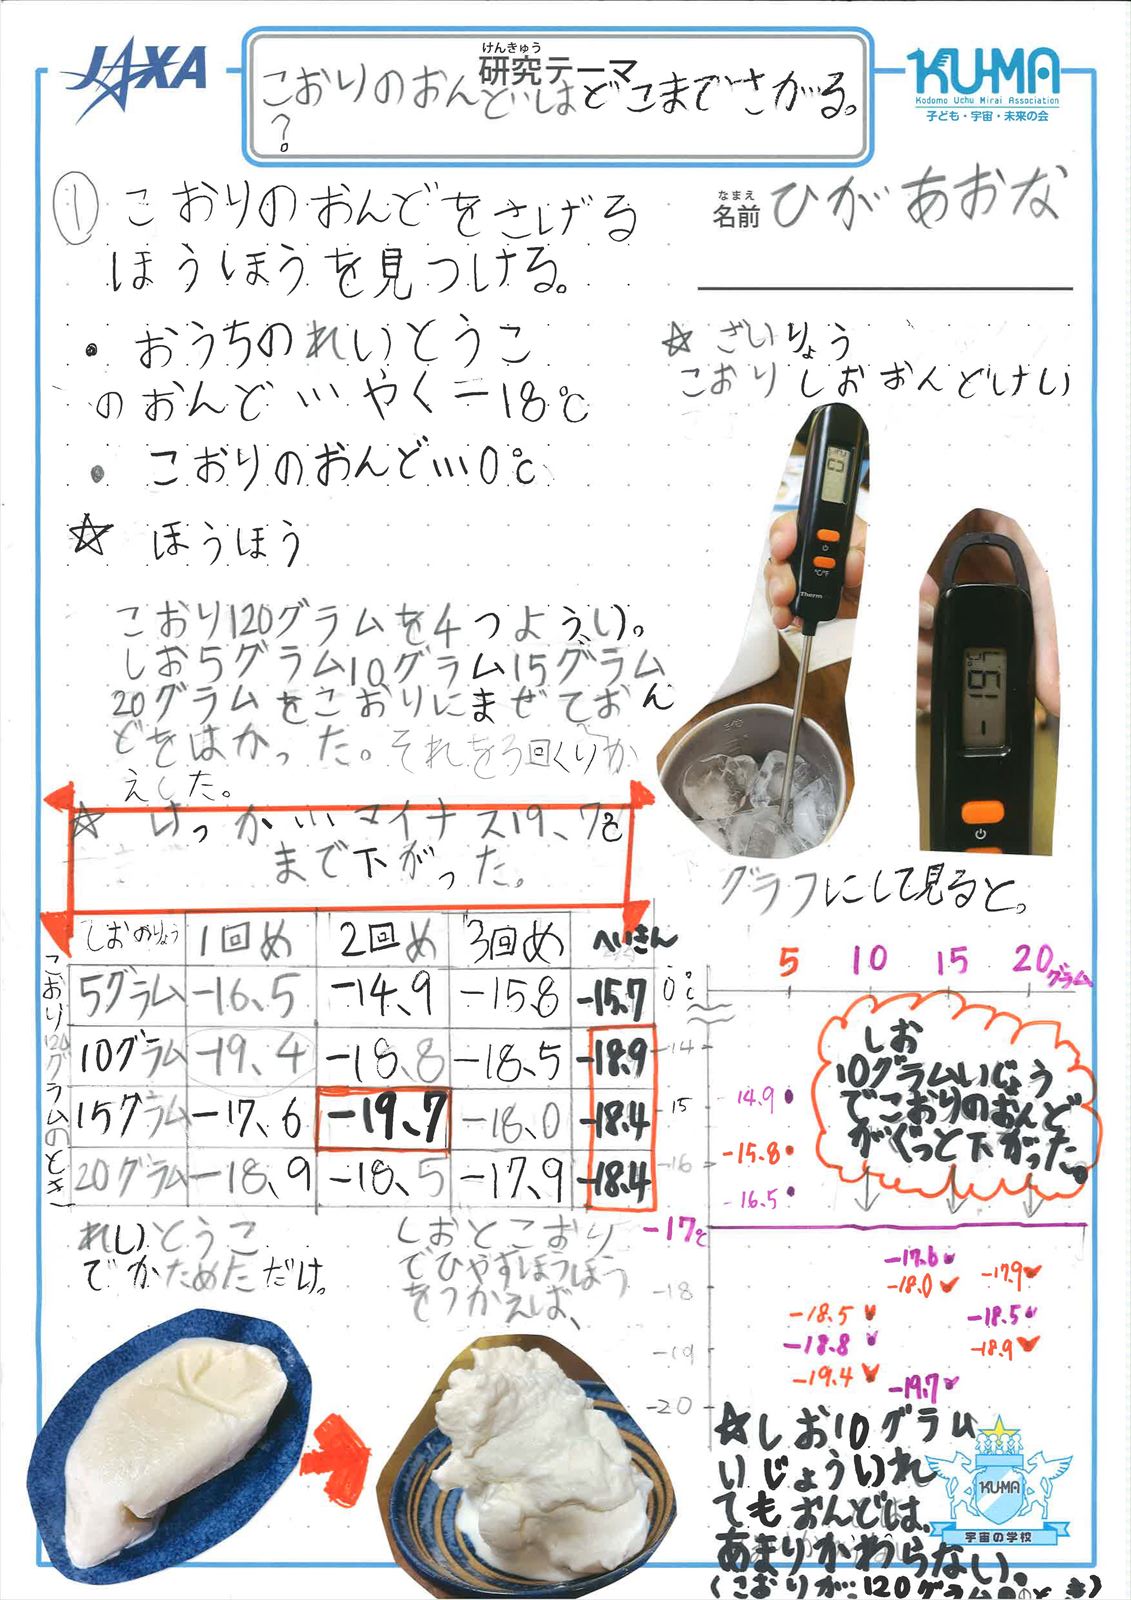 JAXA
けんきゅう
研究テーマ
こおりのおんどはどこまでさがる。
?
KU-MA
Kodomo Uchu Mirai Association
子ども・宇宙・未来の会
なまえ
名前 ひが あおな
① こおりのおんどをさげる
ほうほうを見つける。
・おうちのれいとうこ
のおんど…やく－18℃
・こおりのおんど…0℃
☆ ほうほう
こおり120グラムを4つようい。
しお5グラム10グラム15グラム
20グラムをこおりにまぜておん
どをはかった。それを3回くりか
えした。
☆ ざいりょう
こおり しお おんどけい
℃/℉
Therm
☆ けっか…マイナス19、7℃
まで下がった。
グラフにして見ると。
しおのりょう 1回め 2回め 3回め へいきん
5グラム -16、5 -14、9 -15.8 -15.7
10グラム -19、4 -18、8 -18、5 -18.9
15グラム -17、6 -19、7 -18、0 -18.4
20グラム -18、9 -18、5 -17、9 -18.4
こおり120グラムのとき
5 10 15 20グラム
0℃
-14
15
-16
-17℃
-18
-19
-20
14.9
-15.8
-16.5
-17.6
-18.0
-17.9
-18.5
-18.5
-18.8
-18.9
-19.4
-19.7
しお
10グラムいじょう
でこおりのおんど
がぐっと下がった。
れいとうこ
でかためただけ。
しおとこおり
でひやすほうほう
をつかえば、
☆しお10グラム
いじょういれ
てもおんどは、
あまりかわらない。
(こおりが120グラムのとき)
KU-MA
宇宙の学校